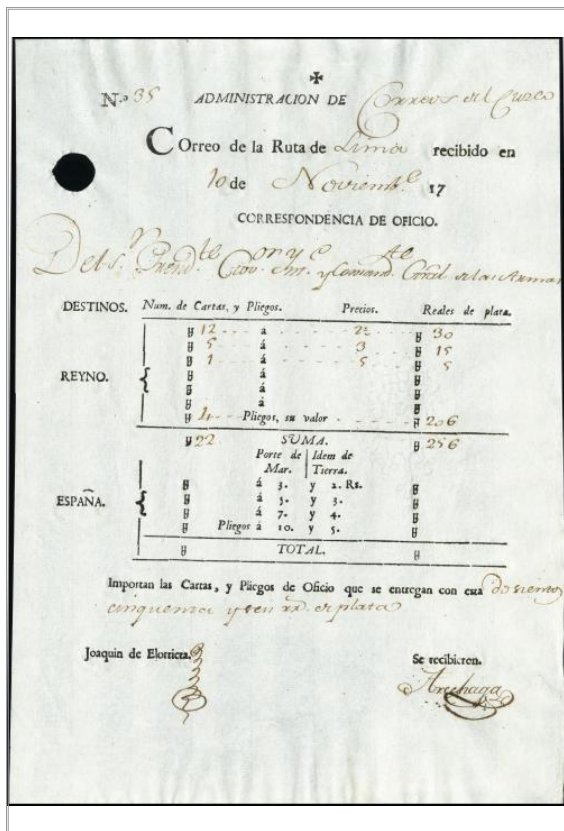 N.º 35 ADMINISTRACION DE Correos del Cuzco
COrreo de la Ruta de Lima recibido en
10 de Noviemb.e 17
CORRESPONDENCIA DE OFICIO.
Del S.r y Comand. de las Armas
DESTINOS. Num. de Cartas, y Pliegos. Precios. Reales de plata.
12 a 2½ 30
5 á 3 15
1 á 5 5
REYNO. á
á
á
4 Pliegos, su valor 206
22. SUMA. 256
Porte de Idem de
Mar. Tierra.
á 3. y 2. Rs.
ESPAÑA. á 5. y 3.
á 7. y 4.
Pliegos á 10. y 5.
TOTAL.
Importan las Cartas, y Pliegos de Oficio que se entregan con esta dosciento
cinquenta y seis rr.s de plata
Joaquin de Elorrieta. Se recibieron.
Arechaga